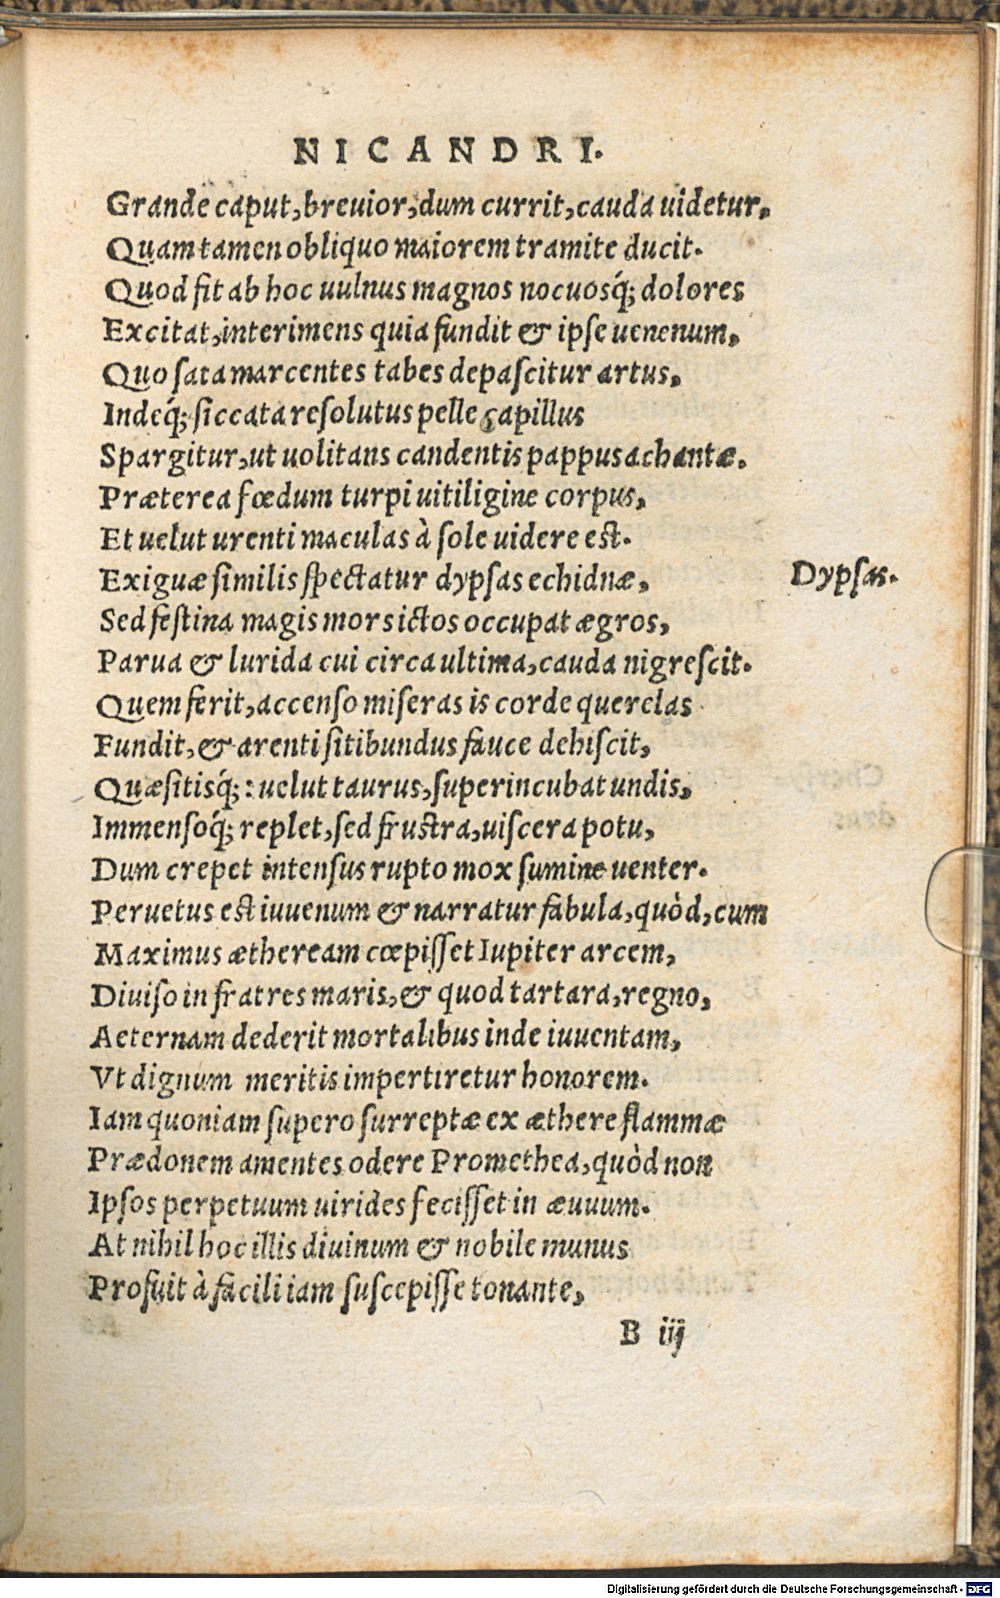 NICANDRI.
Grande caput, breuior, dum currit, cauda uidetur,
Quam tamen obliquo maiorem tramite ducit.
Quod fit ab hoc uulnus magnos nocuosq́; dolores
Excitat, interimens quia fundit & ipse uenenum,
Quo sata marcentes tabes depascitur artus,
Indeq́; siccata resolutus pelle capillus
Spargitur, ut uolitans candentis pappus achantæ.
Præterea fœdum turpi uitiligine corpus,
Et uelut urenti maculas à sole uidere est.
Exiguæ similis spectatur dypsas echidnæ,
Dypsas.
Sed festina magis mors ictos occupat ægros,
Parua & lurida cui circa ultima, cauda nigrescit.
Quem ferit, accenso miseras is corde querelas
Fundit, & arenti sitibundus fauce dehiscit,
Quæsitisq́;: uelut taurus, superincubat undis,
Immensoq́; replet, sed frustra, uiscera potu,
Dum crepet intensus rupto mox sumine uenter.
Peruetus est iuuenum & narratur fabula, quòd, cum
Maximus ætheream cœpisset Iupiter arcem,
Diuiso in fratres maris, & quod tartara, regno,
Aeternam dederit mortalibus inde iuuentam,
Vt dignum meritis impertiretur honorem.
Iam quoniam supero surreptæ ex æthere flammæ
Prædonem amentes odere Promethea, quòd non
Ipsos perpetuum uirides fecisset in æuuum.
At nihil hoc illis diuinum & nobile munus
Profuit à facili iam suscepisse tonante,
B iij
Digitalisierung gefördert durch die Deutsche Forschungsgemeinschaft - DFG